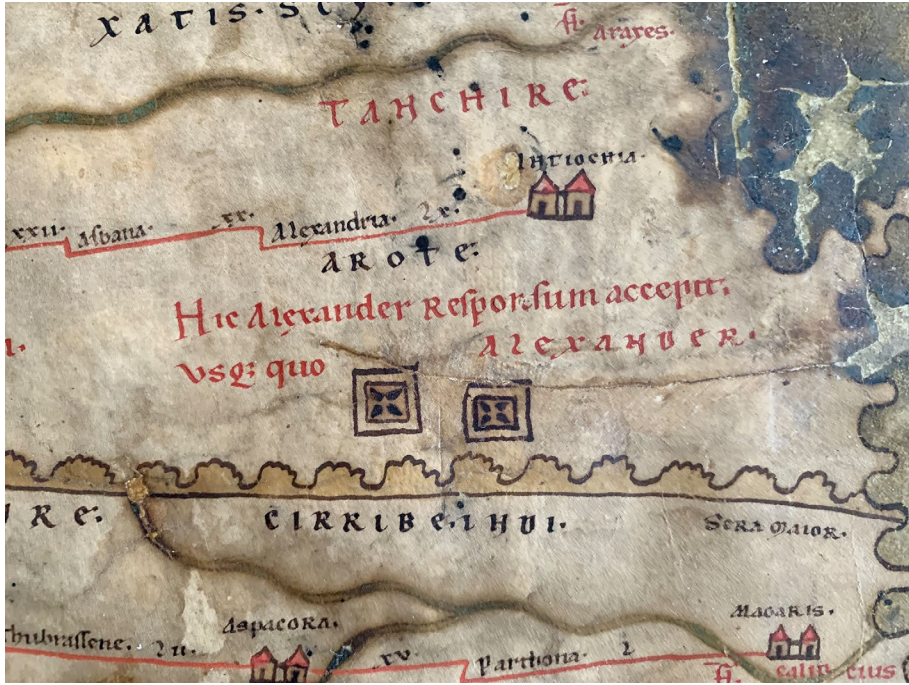 XATIS. SCY
fl. Araxes.
TANCHIRE.
INTIOCHIA.
xxii. Asbana. xx. Alexandria. lx.
AROTE.
Hic Alexander Responsum accepit.
vsq; quo ALEXANDER.
RE. CIRRIBE. INDI. SERA MAIOR.
ASPACORA. MAGARIS.
Thubrassene. lu. xv. Parthona. l
fl. calin cius